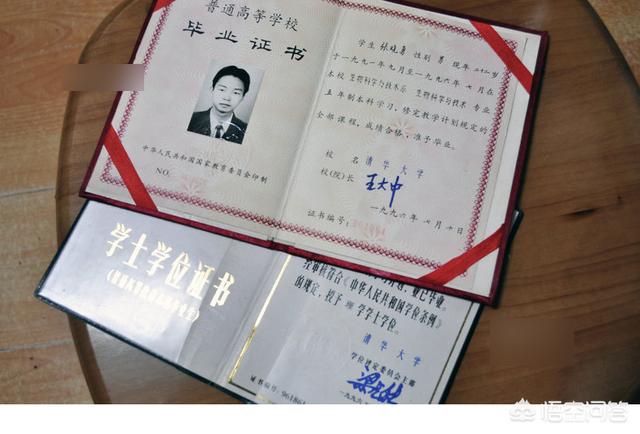 普通高等学校
毕业证书
中华人民共和国国家教育委员会印制
NO.
学生 张晓勇 性别 男 现年 二十二岁
于一九九一年九月至一九九六年七月在
本校 生物科学与技术系 生物科学与技术 专业
五年制本科学习，修完教学计划规定的
全部课程，成绩合格，准予毕业。
校 名 清华大学
校(院)长 王大中
一九九六年七月十日
证书编号：
学士学位证书
业已毕业。
经审核符合《中华人民共和国学位条例》
的规定，授予 理 学学士学位。
清华大学
学位评定委员会主席
证书编号
悟空问答